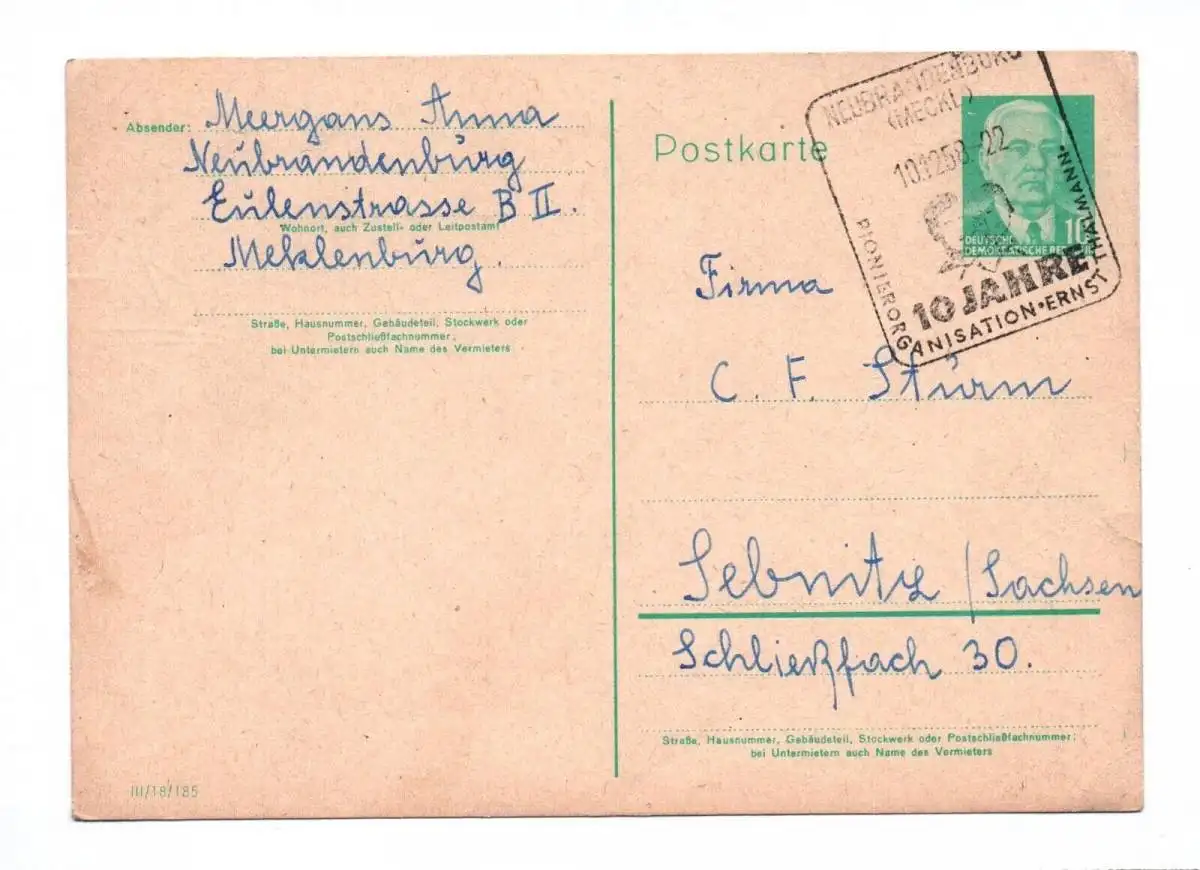 Absender: Meergans Anna
Neubrandenburg
Eulenstrasse B II.
Wohnort, auch Zustell- oder Leitpostamt
Meklenburg.
Straße, Hausnummer, Gebäudeteil, Stockwerk oder
Postschließfachnummer;
bei Untermietern auch Name des Vermieters
III/18/185
Postkarte
NEUBRANDENBURG
(MECKL)
10.12.58-22
10 JAHRE
PIONIERORGANISATION•ERNST THÄLMANN•
10
DEUTSCHE
DEMOKRATISCHE REPUBLIK
Firma
C. F. Sturm
Sebnitz /Sachsen
Schließfach 30.
Straße, Hausnummer, Gebäudeteil, Stockwerk oder Postschließfachnummer;
bei Untermietern auch Name des Vermieters